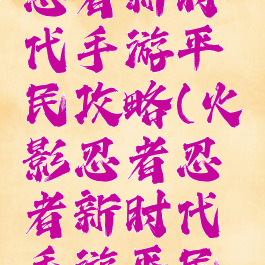 忍者新时
代手游平
民攻略(火
影忍者忍
者新时代
手游平民